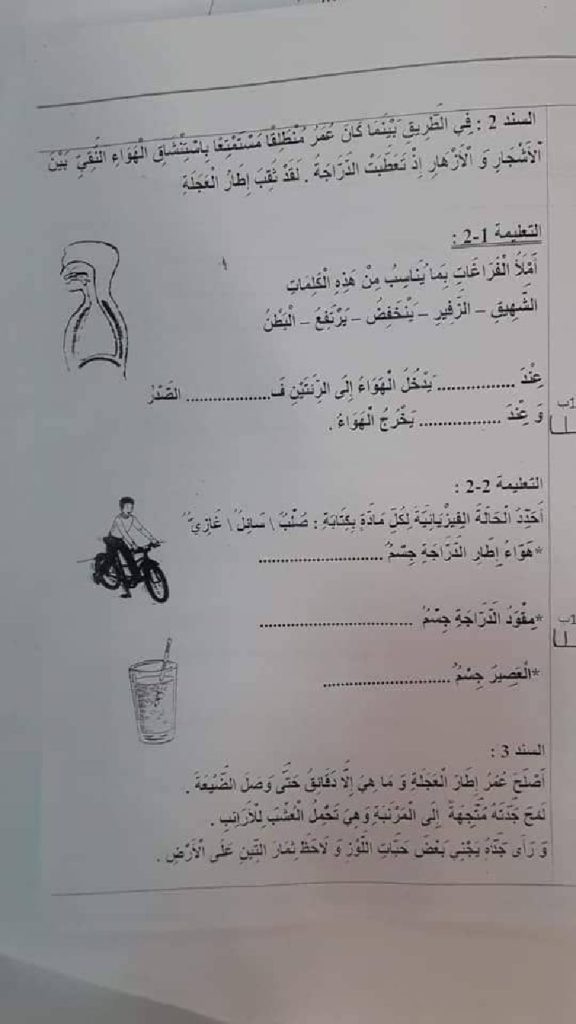 السند 2 : فِي الطَّرِيقِ بَيْنَمَا كَانَ عُمَرُ مُنْطَلِقًا مُسْتَمْتِعًا بِاسْتِنْشَاقِ الْهَوَاءِ النَّقِيِّ بَيْنَ
الْأَشْجَارِ وَ الْأَزْهَارِ إِذْ تَعَطَّبَتْ الدَّرَّاجَةُ . لَقَدْ ثُقِبَ إِطَارُ الْعَجَلَةِ
التعليمة 1-2 :
أَمْلَأُ الْفَرَاغَاتِ بِمَا يُنَاسِبُ مِنْ هَذِهِ الْكَلِمَاتِ
الشَّهِيقِ – الزَّفِيرِ – يَنْخَفِضُ – يَرْتَفِعُ – الْبَطْنُ
عِنْدَ ................ يَدْخُلُ الْهَوَاءُ إِلَى الرِّئَتَيْنِ فَـ.................. الصَّدْرُ
وَ عِنْدَ ................. يَخْرُجُ الْهَوَاءُ .
1ب
التعليمة 2-2 :
أُحَدِّدُ الْحَالَةَ الْفِيزْيَائِيَّةَ لِكُلِّ مَادَّةٍ بِكِتَابَةِ : صُلْبٌ \ سَائِلٌ \ غَازِيٌّ
*هَوَاءُ إِطَارِ الدَّرَّاجَةِ جِسْمٌ ..........................
*مِقْوَدُ الدَّرَّاجَةِ جِسْمٌ ................................
1ب
*الْعَصِيرُ جِسْمٌ ..........................
السند 3 :
أَصْلَحَ عُمَرُ إِطَارَ الْعَجَلَةِ وَ مَا هِيَ إِلَّا دَقَائِقُ حَتَّى وَصَلَ الضَّيْعَةَ .
لَمَحَ جَدَّتَهُ مُتَّجِهَةً إِلَى الْمَرْنَبَةِ وَهِيَ تَحْمِلُ الْعُشْبَ لِلْأَرَانِبِ .
وَ رَأَى جَدَّهُ يَجْنِي بَعْضَ حَبَّاتِ اللَّوْزِ وَ لَاحَظَ ثِمَارَ التِّينِ عَلَى الْأَرْضِ .